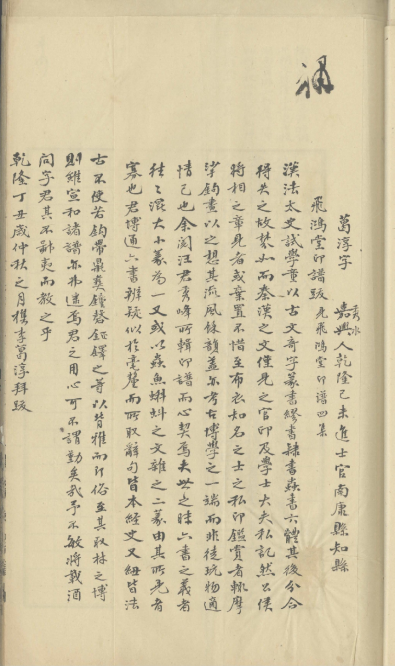 補
葛淳字 嘉興人乾隆己未進士官南康縣知縣
秀水
飛鴻堂印譜跋 見飛鴻堂印譜四集
漢法太史試學童以古文奇字篆書繆書隸書蟲書六體其後分合
得失之故棼如而秦漢之文僅見之官印及學士大夫私記然公侯
將相之章見者或棄置不惜至布衣知名之士之私印鑑賞者輒摩
挲鈎畫以之想其流風餘韻蓋亦考古博學之一端而非徒玩物適
情已也余閱汪君秀峰所輯印譜而心契焉夫世之昧六書之義者
往〻混大小篆為一又或以蟲魚蝌蚪之文雜之二篆由其所見者
寡也君博通六書辨疑似於毫釐而所取辭句皆本經史又紐皆法
古不使若鈎帶鼎彝鐘磬鉦鐸之等以背雅而近俗至其取材之博
則雖宣和諸譜亦弗逮焉君之用心可不謂勤矣哉予不敏將載酒
問字君其不鄙夷而教之乎
乾隆丁丑歲仲秋之月檇李葛淳拜跋